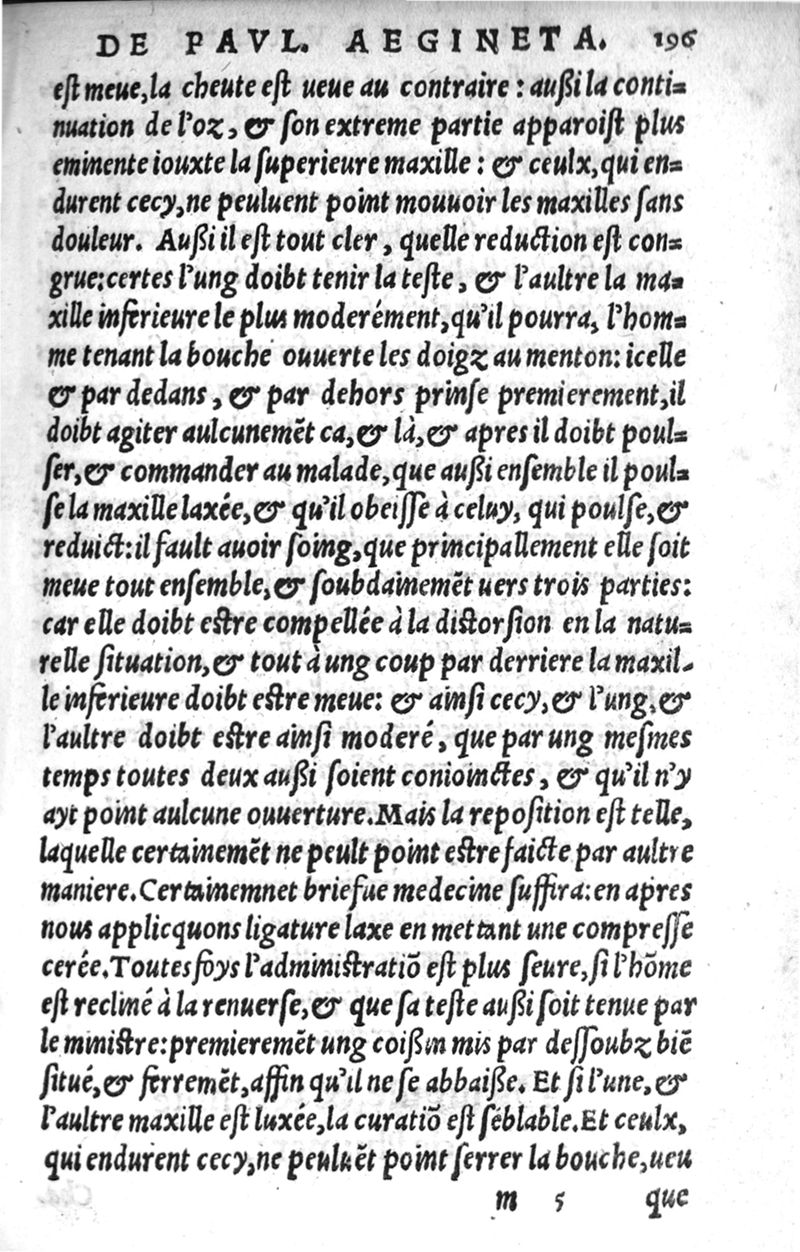 DE PAVL. AEGINETA. 196
eſt meue,la cheute eſt ueue au contraire : außi la conti-
nuation de l'oz, & ſon extreme partie apparoiſt plus
eminente iouxte la ſuperieure maxille : & ceulx, qui en-
durent cecy,ne peuluent point mouuoir les maxilles ſans
douleur. Außi il eſt tout cler, quelle reduction eſt con-
grue:certes l'ung doibt tenir la teſte, & l'aultre la ma-
xille inferieure le plus moderément,qu'il pourra, l'hom-
me tenant la bouche ouuerte les doigz au menton: icelle
& par dedans, & par dehors prinſe premierement,il
doibt agiter aulcunemẽt ca,& là,& apres il doibt poul-
ſer,& commander au malade,que außi enſemble il poul-
ſe la maxille laxée,& qu'il obeiſſe à celuy, qui poulſe,&
reduict:il fault auoir ſoing,que principallement elle ſoit
meue tout enſemble,& ſoubdainemẽt uers trois parties:
car elle doibt eſtre compellée à la diſtorſion en la natu-
relle ſituation,& tout à ung coup par derriere la maxil-
le inferieure doibt eſtre meue: & ainſi cecy,& l'ung,&
l'aultre doibt eſtre ainſi moderé, que par ung meſmes
temps toutes deux außi ſoient conioinctes, & qu'il n'y
ayt point aulcune ouuerture.Mais la repoſition eſt telle,
laquelle certainemẽt ne peult point eſtre faicte par aultre
maniere.Certainemnet briefue medecine ſuffira:en apres
nous applicquons ligature laxe en mettant une compreſſe
cerée.Toutesfoys l'adminiſtratiõ eſt plus ſeure,ſi l'hõme
eſt recliné à la renuerſe,& que ſa teſte außi ſoit tenue par
le miniſtre:premieremẽt ung coißin mis par deſſoubz biẽ
ſitué,& ferremẽt,affin qu'il ne ſe abbaiße. Et ſi l'une,&
l'aultre maxille eſt luxée,la curatiõ eſt ſẽblable.Et ceulx,
qui endurent cecy,ne peuluẽt point ſerrer la bouche,ueu
m 5 que